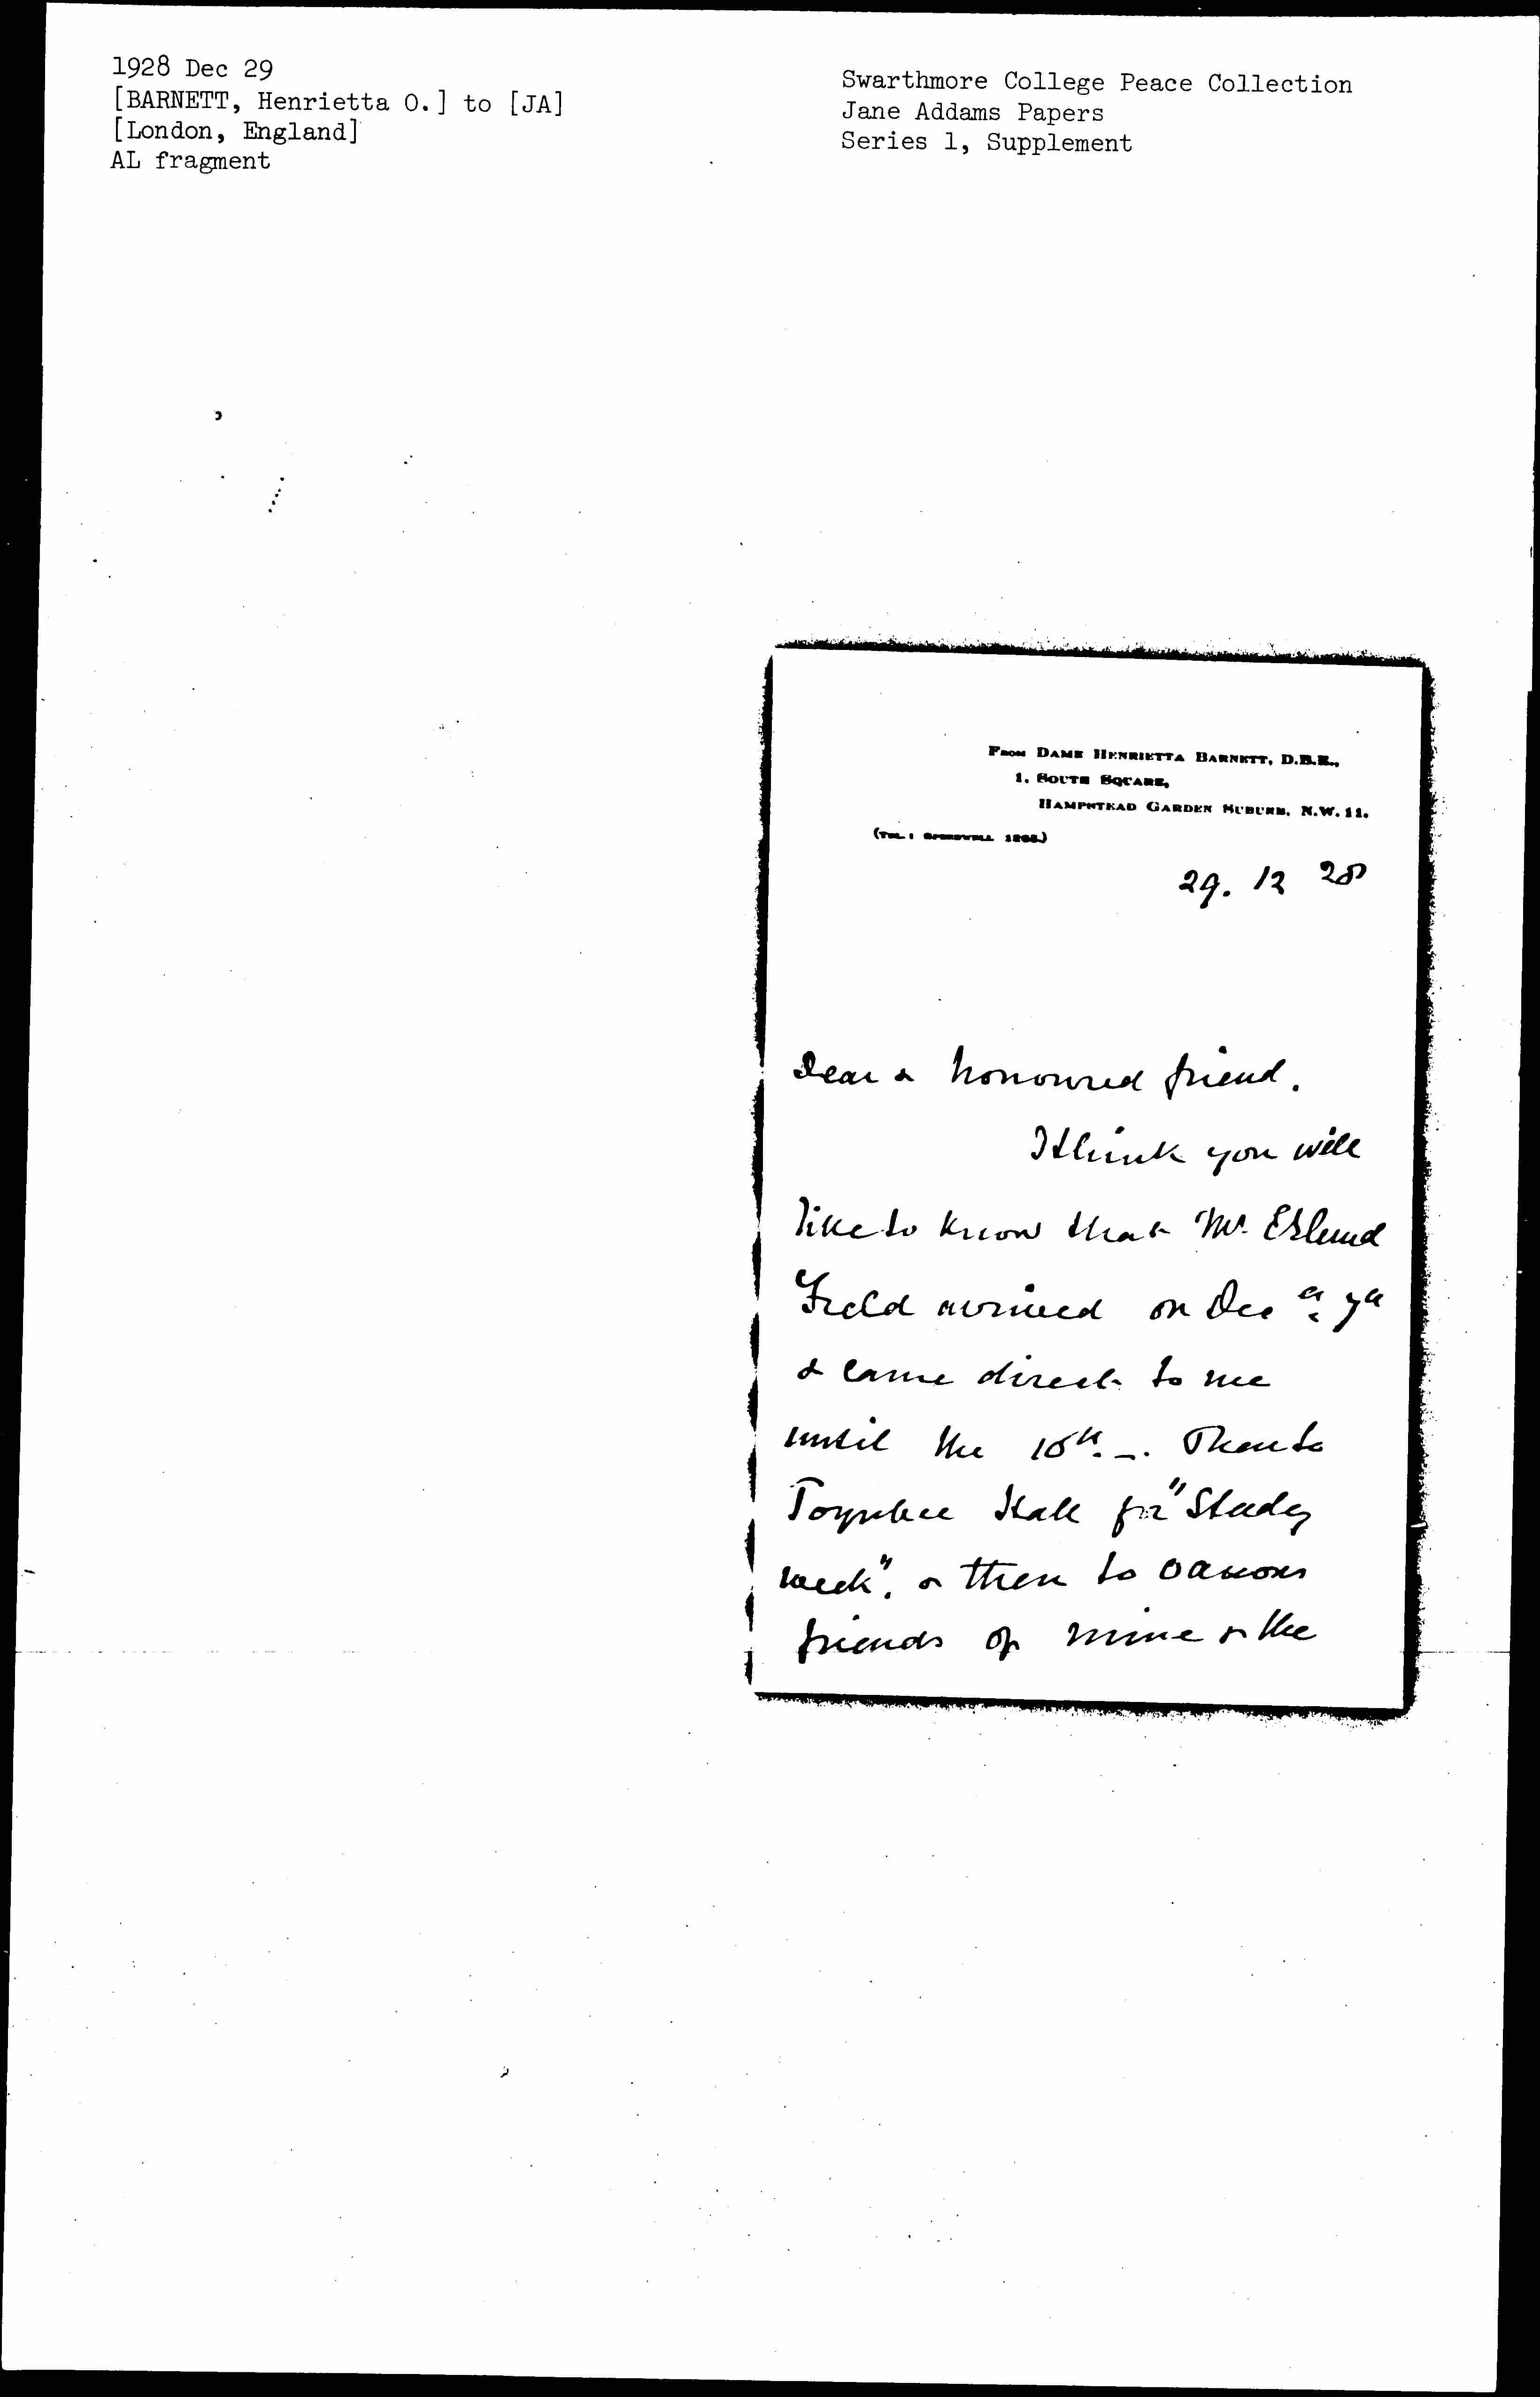 1928 Dec 29
[BARNETT, Henrietta O.] to [JA]
[London, England]
AL fragment
Swarthmore College Peace Collection
Jane Addams Papers
Series 1, Supplement
From Dame Henrietta Barnett, D.B.E.,
1, South Square,
Hampstead Garden Suburb, N.W. 11.
(Tel.: Speedwell
29. 12 28
Dear & honoured friend.
I think you will
like to know that Mr.
Field arrived on Dec
& came direct to me
until the
Then to
Toynbee Hall for "Study
week", & then to various
friends of mine & the